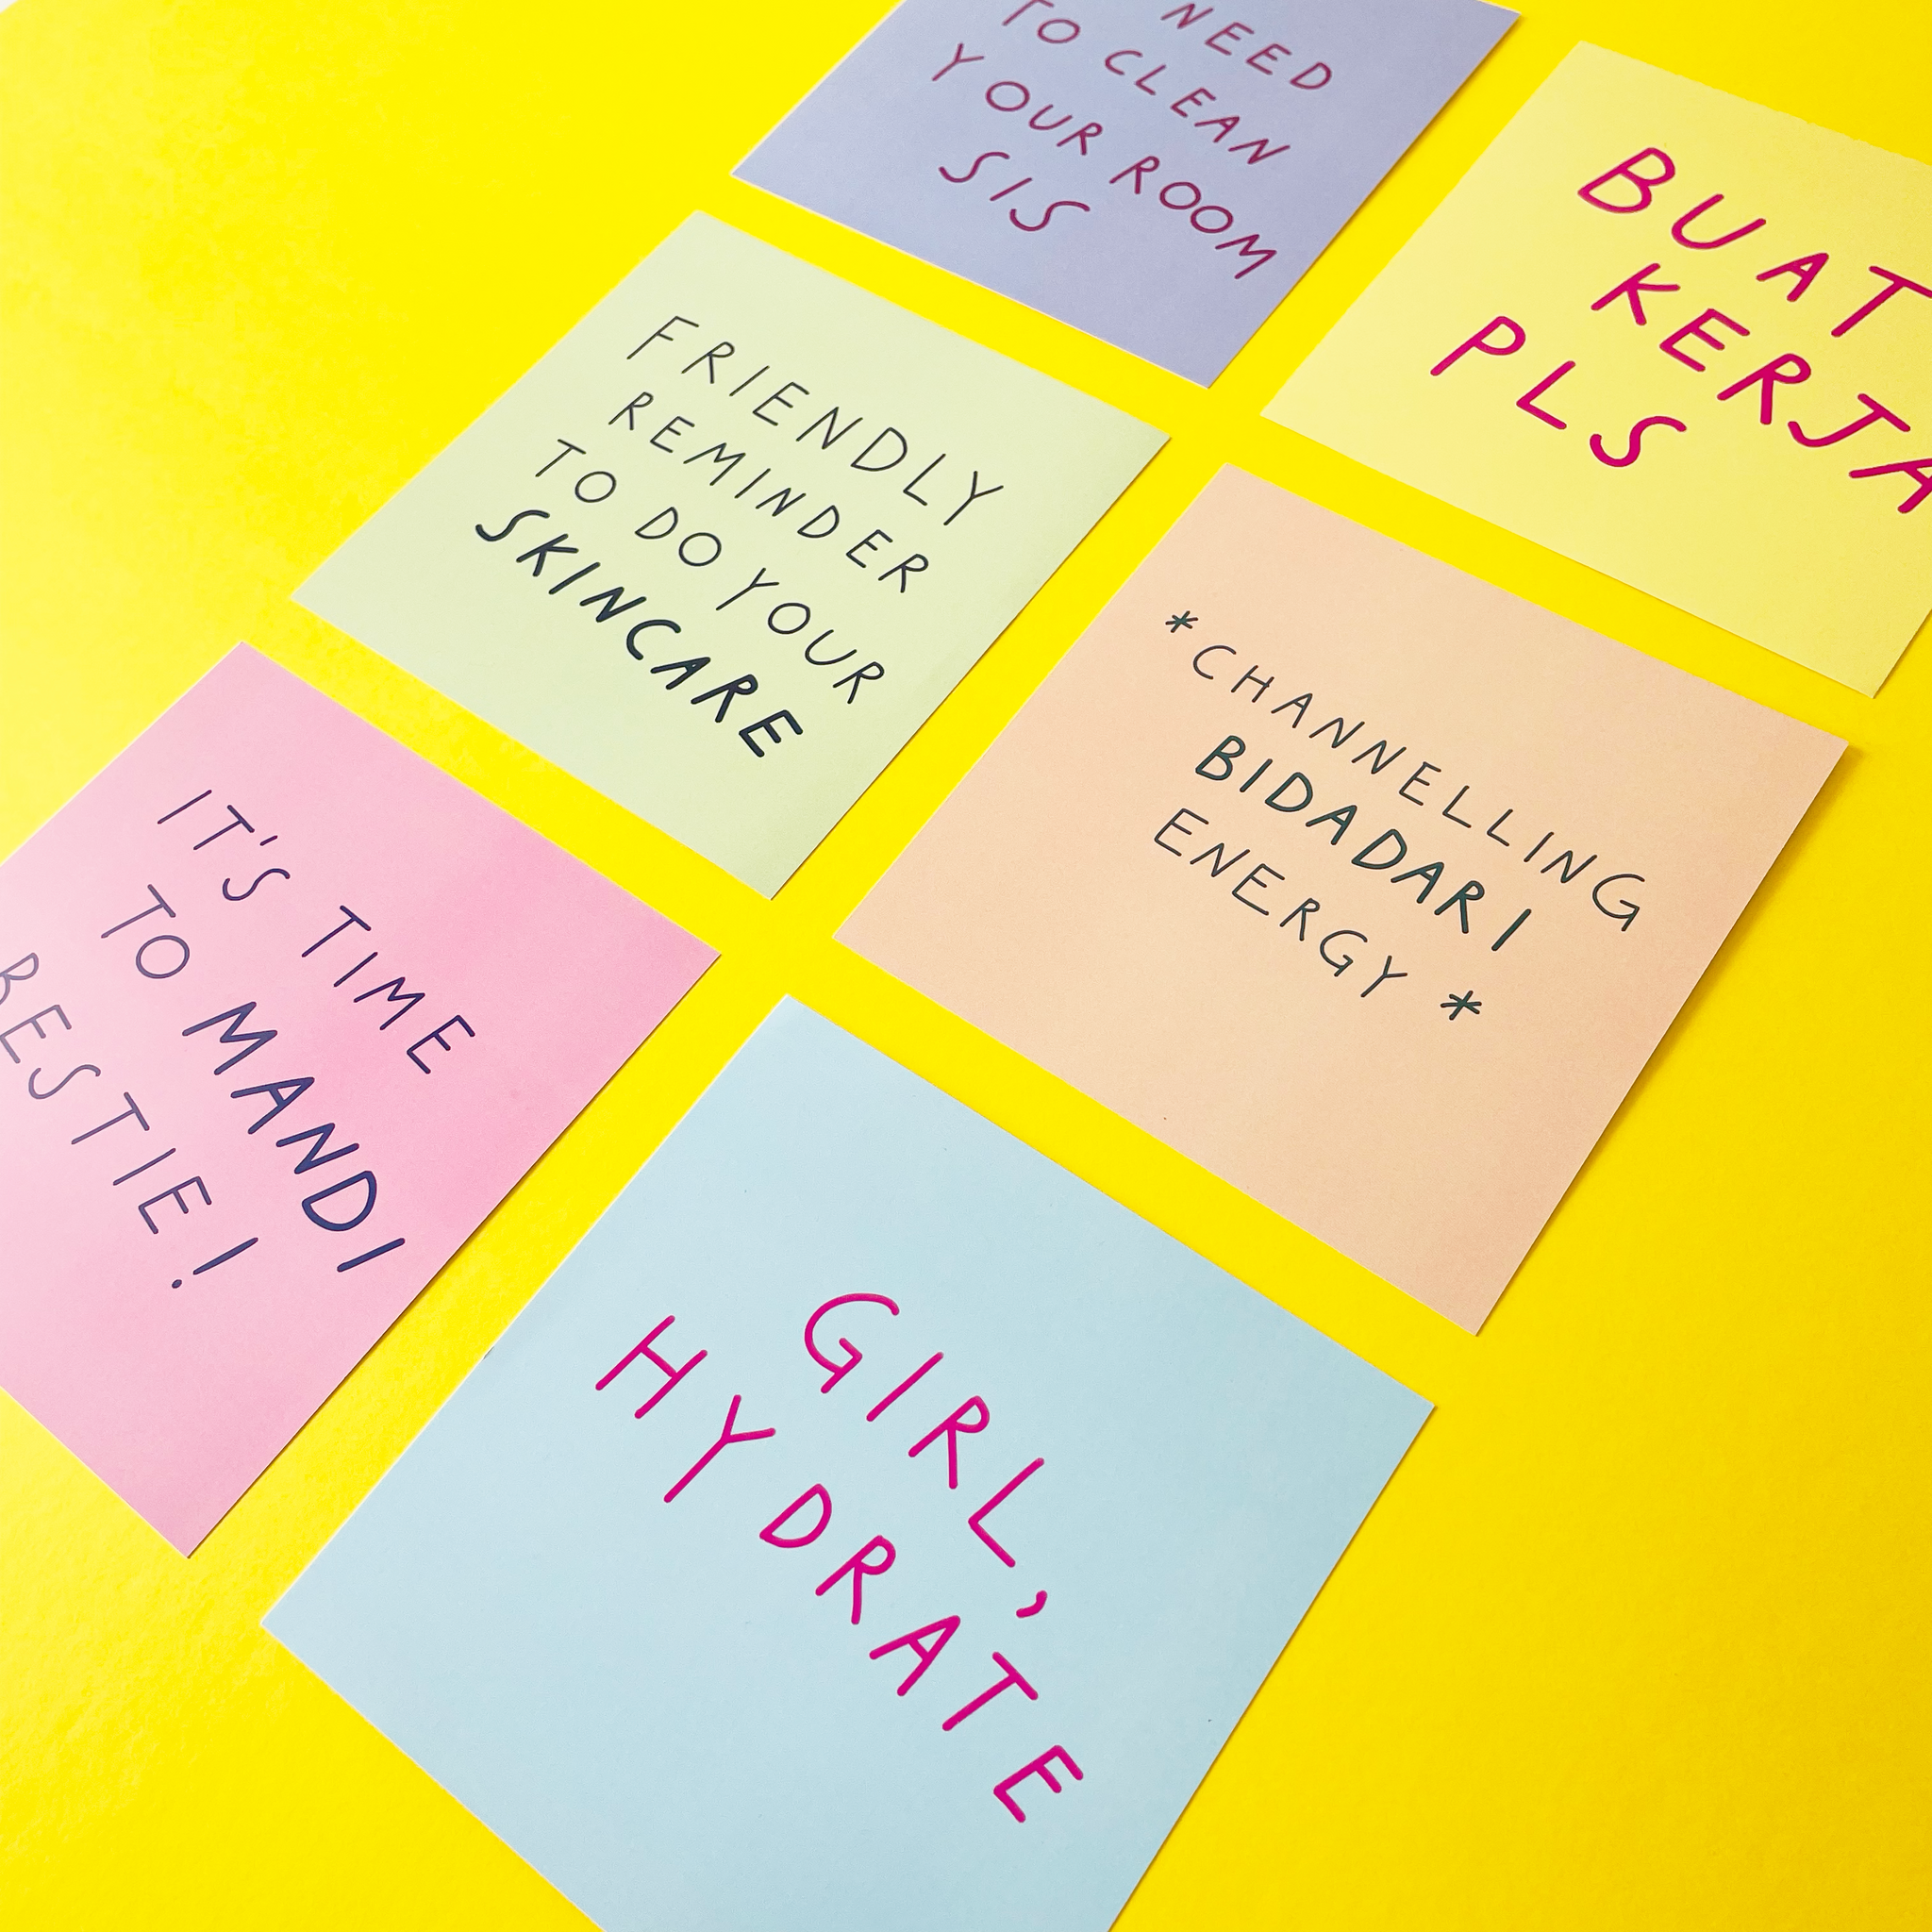 NEED
TO CLEAN
YOUR ROOM
SIS
BUAT
KERJA
PLS
FRIENDLY
REMINDER
TO DO YOUR
SKINCARE
*CHANNELLING
BIDADARI
ENERGY*
IT'S TIME
TO MANDI
BESTIE!
GIRL,
HYDRATE